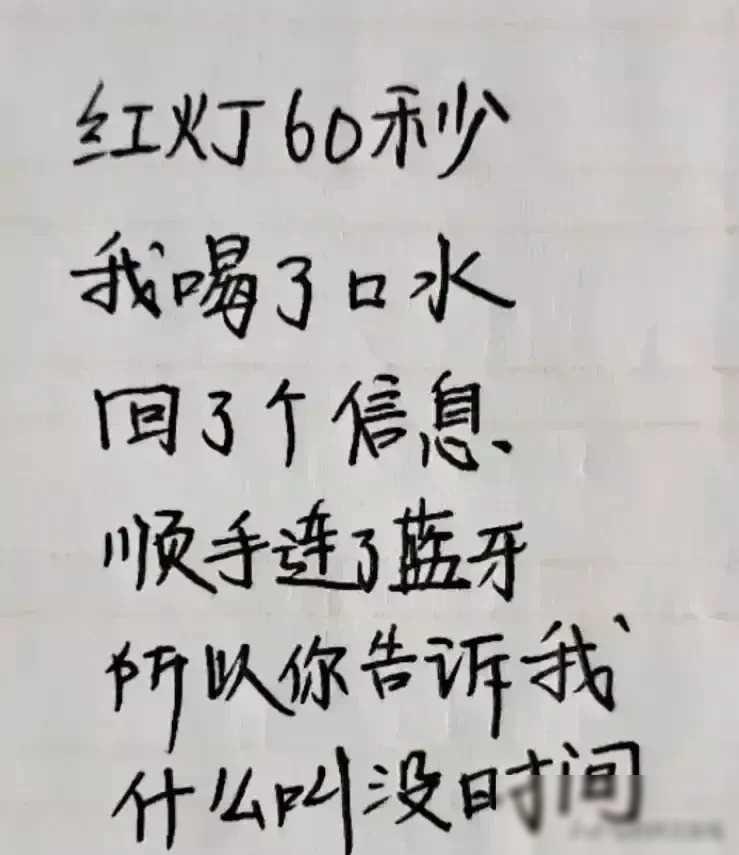 红灯60秒
我喝了口水
回了个信息
顺手连了蓝牙
所以你告诉我
什么叫没时间